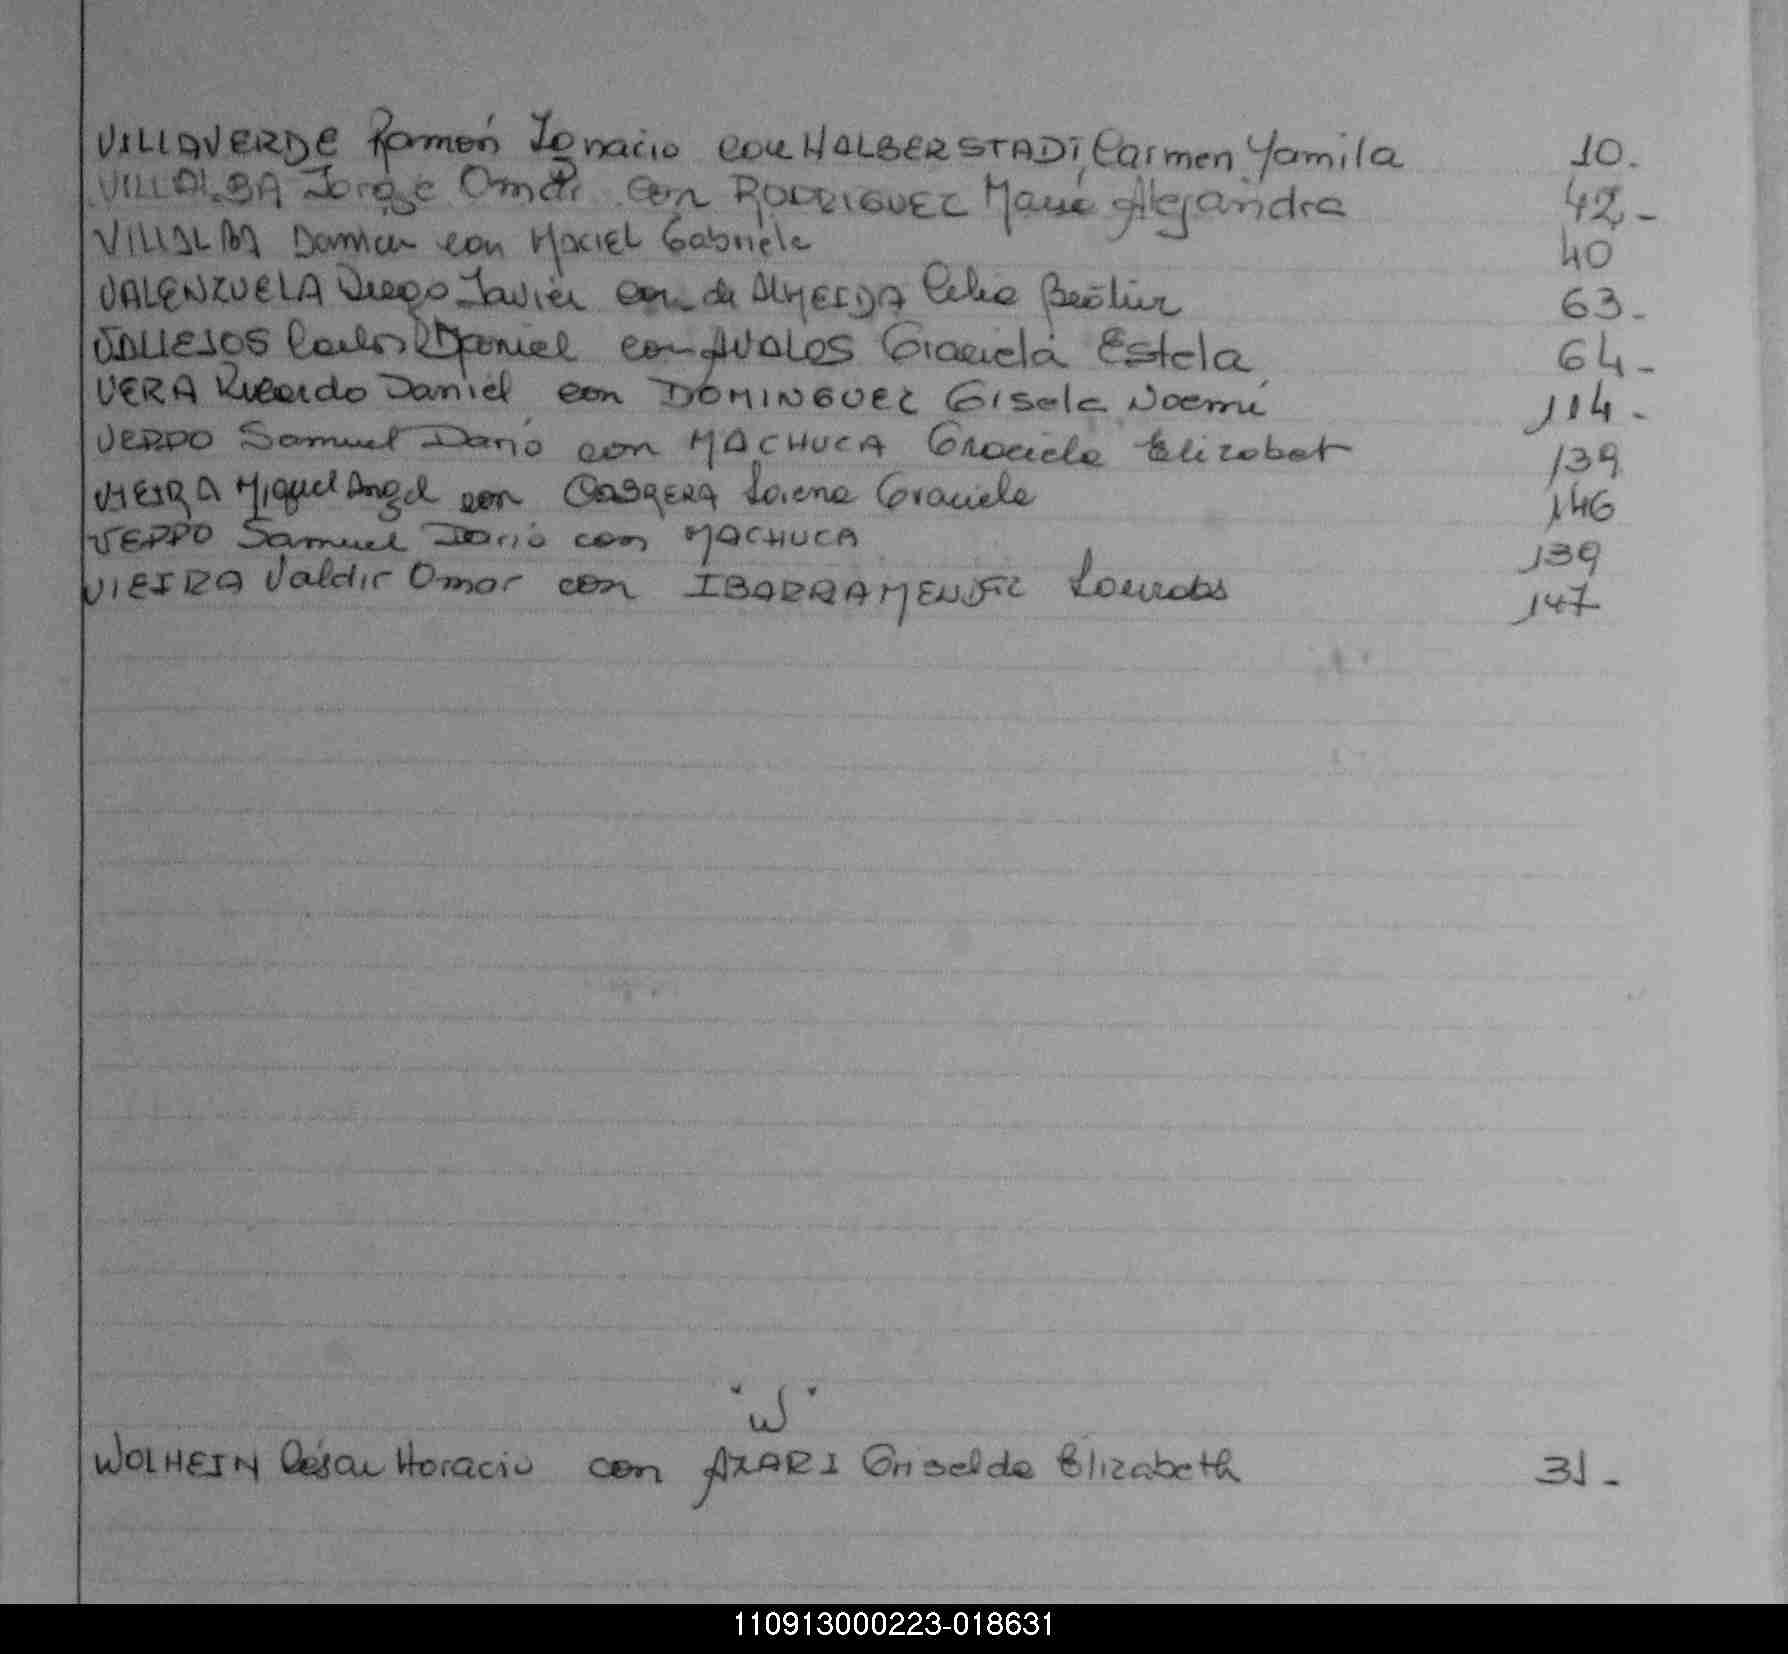 VILLAVERDE Ramón Ignacio con HALBERSTADT, Carmen Yamila 10.
VILLALBA Jorge Omar con RODRIGUEZ María Alejandra 42-
VILLALBA Damian con Maciel Gabriela 40
VALENZUELA Diego Javier con de ALMEIDA Celia Beatriz 63-
VALLEJOS Carlos Daniel con AVALOS Graciela Estela 64-
VERA Ricardo Daniel con DOMINGUEZ Gisela Noemi 114-
VERDO Samuel Dario con MACHUCA Graciela Elizabet 139
VIEIRA Miguel Angel con CABRERA Lorena Graciela 146
VERDO Samuel Dario con MACHUCA 139
VIEIRA Valdir Omar con Lourdes 147
"W"
WOLHEIN César Horacio con AZARI Griselda Elizabeth 31-
110913000223-018631